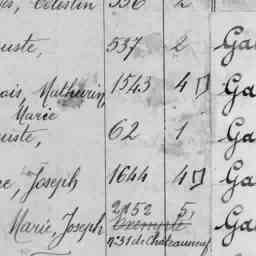 Célestin 556 2
uste, 537 2 Ga
ois, Mathurin 1543 4 Ga
Marie
uste, 62 1 Ga
e, Joseph 1644 4 Ga
Marie, Joseph 2152 5, Ga
Exempté
n°31 de Châteauneuf